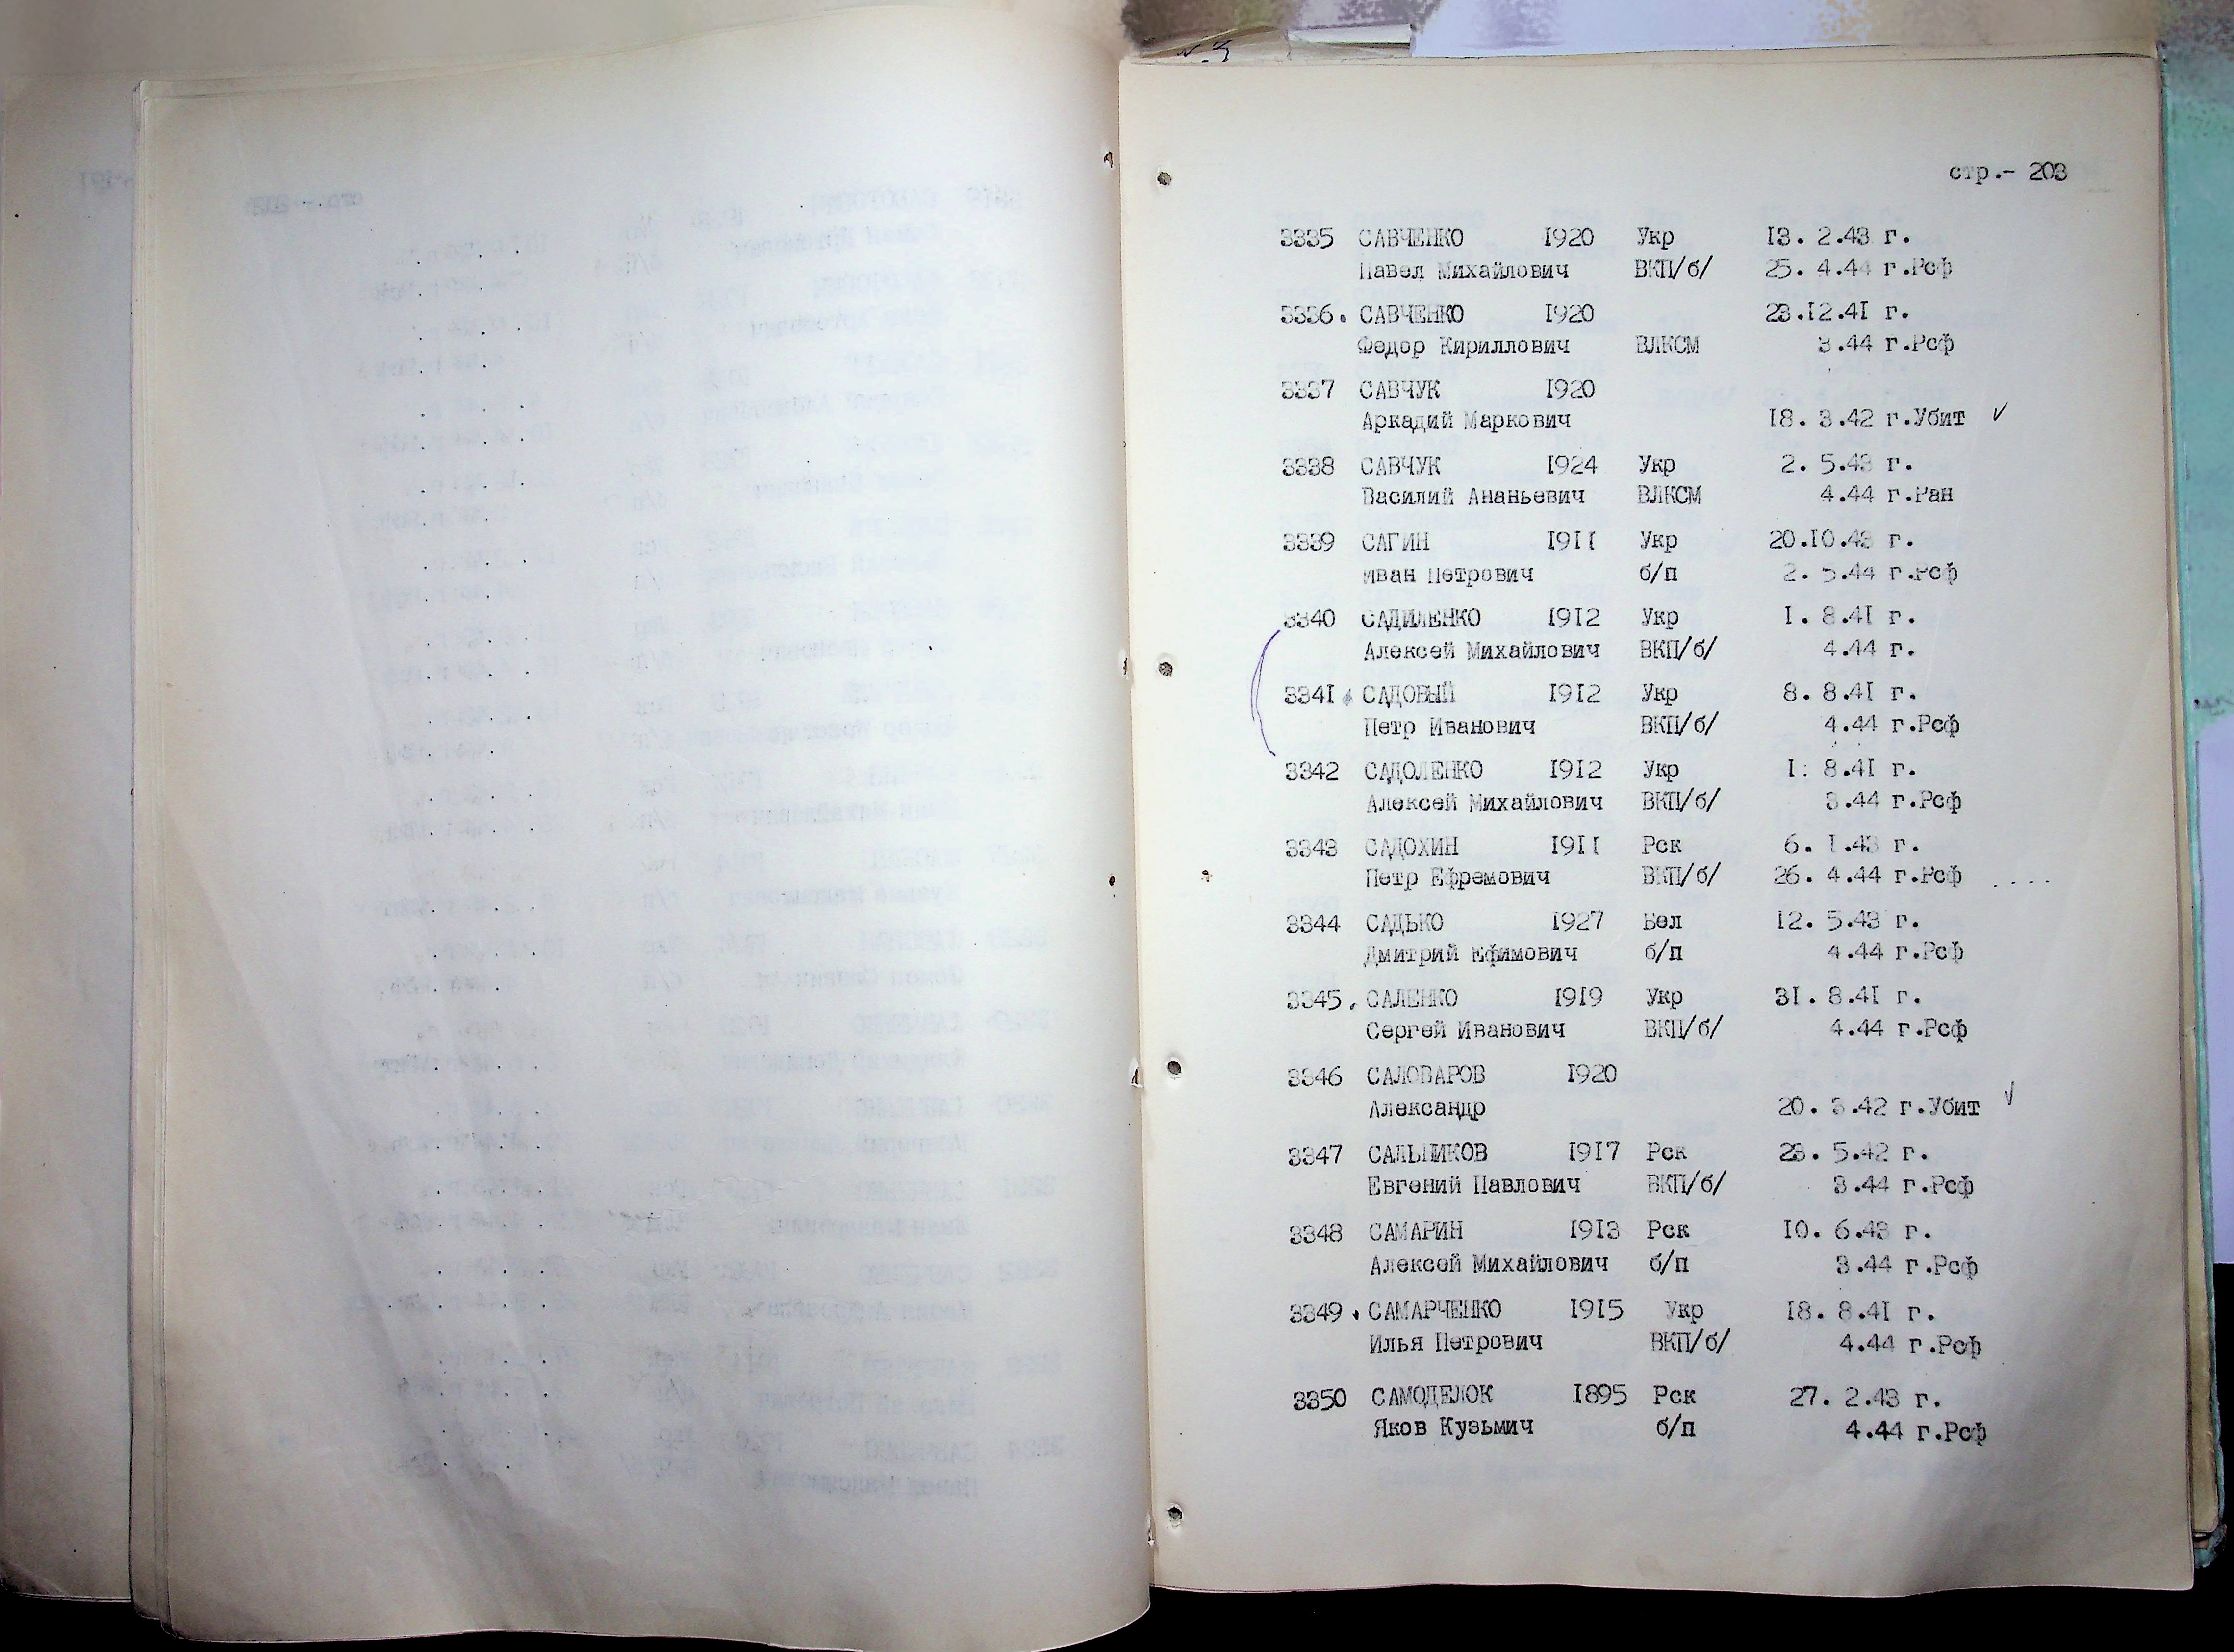 стр.- 203
3335 САВЧЕНКО 1920 Укр 13. 2.43 г.
Павел Михайлович ВКП/б/ 25. 4.44 г.Рсф
3336. САВЧЕНКО 1920 23.12.41 г.
Федор Кириллович ВЛКСМ 3.44 г.Рсф
3337 САВЧУК 1920
Аркадий Маркович 18. 3.42 г.Убит ✓
3338 САВЧУК 1924 Укр 2. 5.43 г.
Василий Ананьевич ВЛКСМ 4.44 г.Ран
3339 САГИН 1911 Укр 20.10.43 г.
Иван Петрович б/п 2. 5.44 г.Рсф
3340 САДИЛЕНКО 1912 Укр 1. 8.41 г.
Алексей Михайлович ВКП/б/ 4.44 г.
3341. САДОВЫЙ 1912 Укр 8. 8.41 г.
Петр Иванович ВКП/б/ 4.44 г.Рсф
3342 САДОЛЕНКО 1912 Укр 1: 8.41 г.
Алексей Михайлович ВКП/б/ 3.44 г.Рсф
3343 САДОХИН 1911 Рск 6. 1.43 г.
Петр Ефремович ВКП/б/ 26. 4.44 г.Рсф ....
3344 САДЬКО 1927 Бел 12. 5.43 г.
Дмитрий Ефимович б/п 4.44 г.Рсф
3345. САЛЕНКО 1919 Укр 31. 8.41 г.
Сергей Иванович ВКП/б/ 4.44 г.Рсф
3346 САЛОВАРОВ 1920
Александр 20. 3.42 г.Убит ✓
3347 САЛЬНИКОВ 1917 Рск 23. 5.42 г.
Евгений Павлович ВКП/б/ 3.44 г.Рсф
3348 САМАРИН 1913 Рск 10. 6.43 г.
Алексей Михайлович б/п 3.44 г.Рсф
3349. САМАРЧЕНКО 1915 Укр 18. 8.41 г.
Илья Петрович ВКП/б/ 4.44 г.Рсф
3350 САМОДЕЛОК 1895 Рск 27. 2.43 г.
Яков Кузьмич б/п 4.44 г.Рсф